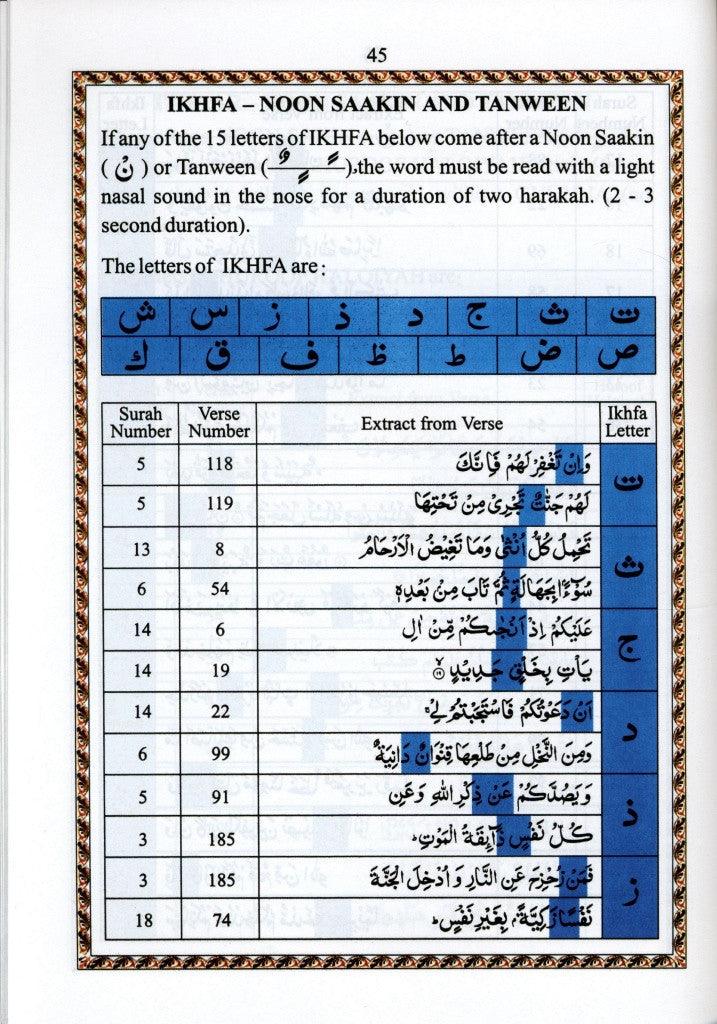 45
IKHFA – NOON SAAKIN AND TANWEEN
If any of the 15 letters of IKHFA below come after a Noon Saakin
( نْ ) or Tanween ( ـًـٍـٌ ),the word must be read with a light
nasal sound in the nose for a duration of two harakah. (2 - 3
second duration).
The letters of IKHFA are :
ت ث ج د ذ ز س ش
ص ض ط ظ ف ق ك
Surah Number Verse Number Extract from Verse Ikhfa Letter
5 118 وَاِنْ تَغْفِرْ لَهُمْ فَاِنَّكَ ت
5 119 لَهُمْ جَنّٰتٌ تَجْرِىْ مِنْ تَحْتِهَا
13 8 تَحْمِلُ كُلُّ اُنْثٰى وَمَا تَغِيْضُ الْاَرْحَامُ ث
6 54 سُوْٓءًۢا بِجَهَالَةٍ ثُمَّ تَابَ مِنْۢ بَعْدِهٖ
14 6 عَلَيْكُمْ اِذْ اَنْجٰىكُمْ مِّنْ اٰلِ ج
14 19 يَاْتِ بِخَلْقٍ جَدِيْدٍ ۙ‏﴿۱۹﴾
14 22 اَنْ دَعَوْتُكُمْ فَاسْتَجَبْتُمْ لِىْ‌ۚ د
6 99 وَمِنَ النَّخْلِ مِنْ طَلْعِهَا قِنْوَانٌ دَانِيَةٌ
5 91 وَيَصُدَّكُمْ عَنْ ذِكْرِ اللّٰهِ وَعَنِ ذ
3 185 كُلُّ نَفْسٍ ذَآئِقَةُ الْمَوْتِ‌ؕ
3 185 فَمَنْ زُحْزِحَ عَنِ النَّارِ وَاُدْخِلَ الْجَنَّةَ ز
18 74 نَفْسًا زَكِيَّةًۢ بِغَيْرِ نَفْسٍؕ